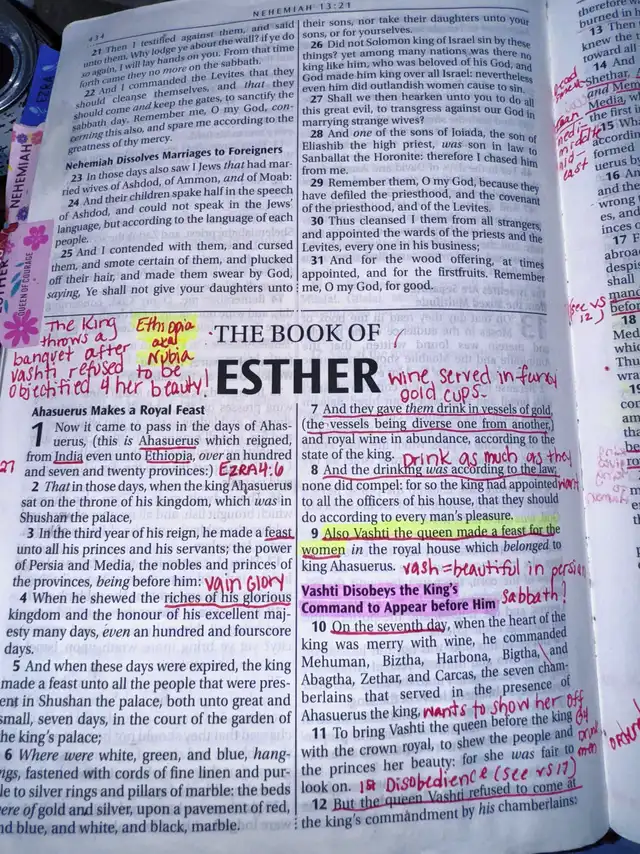 434
NEHEMIAH 13:21
21 Then I testified against them, and said
unto them, Why lodge ye about the wall? if ye do
so again, I will lay hands on you. From that time
forth came they no more on the sabbath.
22 And I commanded the Levites that they
should cleanse themselves, and that they
should come and keep the gates, to sanctify the
sabbath day. Remember me, O my God, con-
cerning this also, and spare me according to the
greatness of thy mercy.
Nehemiah Dissolves Marriages to Foreigners
23 In those days also saw I Jews that had mar-
ried wives of Ashdod, of Ammon, and of Moab:
24 And their children spake half in the speech
of Ashdod, and could not speak in the Jews'
language, but according to the language of each
people.
25 And I contended with them, and cursed
them, and smote certain of them, and plucked
off their hair, and made them swear by God,
saying, Ye shall not give your daughters unto
their sons, nor take their daughters unto your
sons, or for yourselves.
26 Did not Solomon king of Israel sin by these
things? yet among many nations was there no
king like him, who was beloved of his God, and
God made him king over all Israel: nevertheless
even him did outlandish women cause to sin.
27 Shall we then hearken unto you to do all
this great evil, to transgress against our God in
marrying strange wives?
28 And one of the sons of Joiada, the son of
Eliashib the high priest, was son in law to
Sanballat the Horonite: therefore I chased him
from me.
29 Remember them, O my God, because they
have defiled the priesthood, and the covenant
of the priesthood, and of the Levites.
30 Thus cleansed I them from all strangers,
and appointed the wards of the priests and the
Levites, every one in his business;
31 And for the wood offering, at times
appointed, and for the firstfruits. Remember
me, O my God, for good.
EZRA
NEHEMIAH
QUEEN OF COURAGE
The King
throws a
banquet after
vashti refused to be
objectified 4 her beauty!
Ethiopia
aka
Nubia
THE BOOK OF
ESTHER
wine served in fancy
gold cups-
Ahasuerus Makes a Royal Feast
1 Now it came to pass in the days of Ahas-
uerus, (this is Ahasuerus which reigned,
from India even unto Ethiopia, over an hundred
and seven and twenty provinces:) EZRA 4:6
127
2 That in those days, when the king Ahasuerus
sat on the throne of his kingdom, which was in
Shushan the palace,
3 In the third year of his reign, he made a feast
unto all his princes and his servants; the power
of Persia and Media, the nobles and princes of
the provinces, being before him: vain glory
4 When he shewed the riches of his glorious
kingdom and the honour of his excellent maj-
esty many days, even an hundred and fourscore
days.
5 And when these days were expired, the king
made a feast unto all the people that were pres-
ent in Shushan the palace, both unto great and
small, seven days, in the court of the garden of
the king's palace;
6 Where were white, green, and blue, hang-
ngs, fastened with cords of fine linen and pur-
le to silver rings and pillars of marble: the beds
ere of gold and silver, upon a pavement of red,
nd blue, and white, and black, marble.
7 And they gave them drink in vessels of gold,
(the vessels being diverse one from another,)
and royal wine in abundance, according to the
state of the king. Drink as much as they
want
8 And the drinking was according to the law;
none did compel: for so the king had appointed
to all the officers of his house, that they should
do according to every man's pleasure.
9 Also Vashti the queen made a feast for the
women in the royal house which belonged to
king Ahasuerus. vash = beautiful in persian
Vashti Disobeys the King's
Command to Appear before Him
Sabbath?
10 On the seventh day, when the heart of the
king was merry with wine, he commanded
Mehuman, Biztha, Harbona, Bigtha, and
Abagtha, Zethar, and Carcas, the seven cham-
berlains that served in the presence of
Ahasuerus the king, wants to show her off
11 To bring Vashti the queen before the king
with the crown royal, to shew the people and
the princes her beauty: for she was fair to
look on. 1st Disobedience (see vs 17)
12 But the queen Vashti refused to come at
the king's commandment by his chamberlains:
(see vs
12)